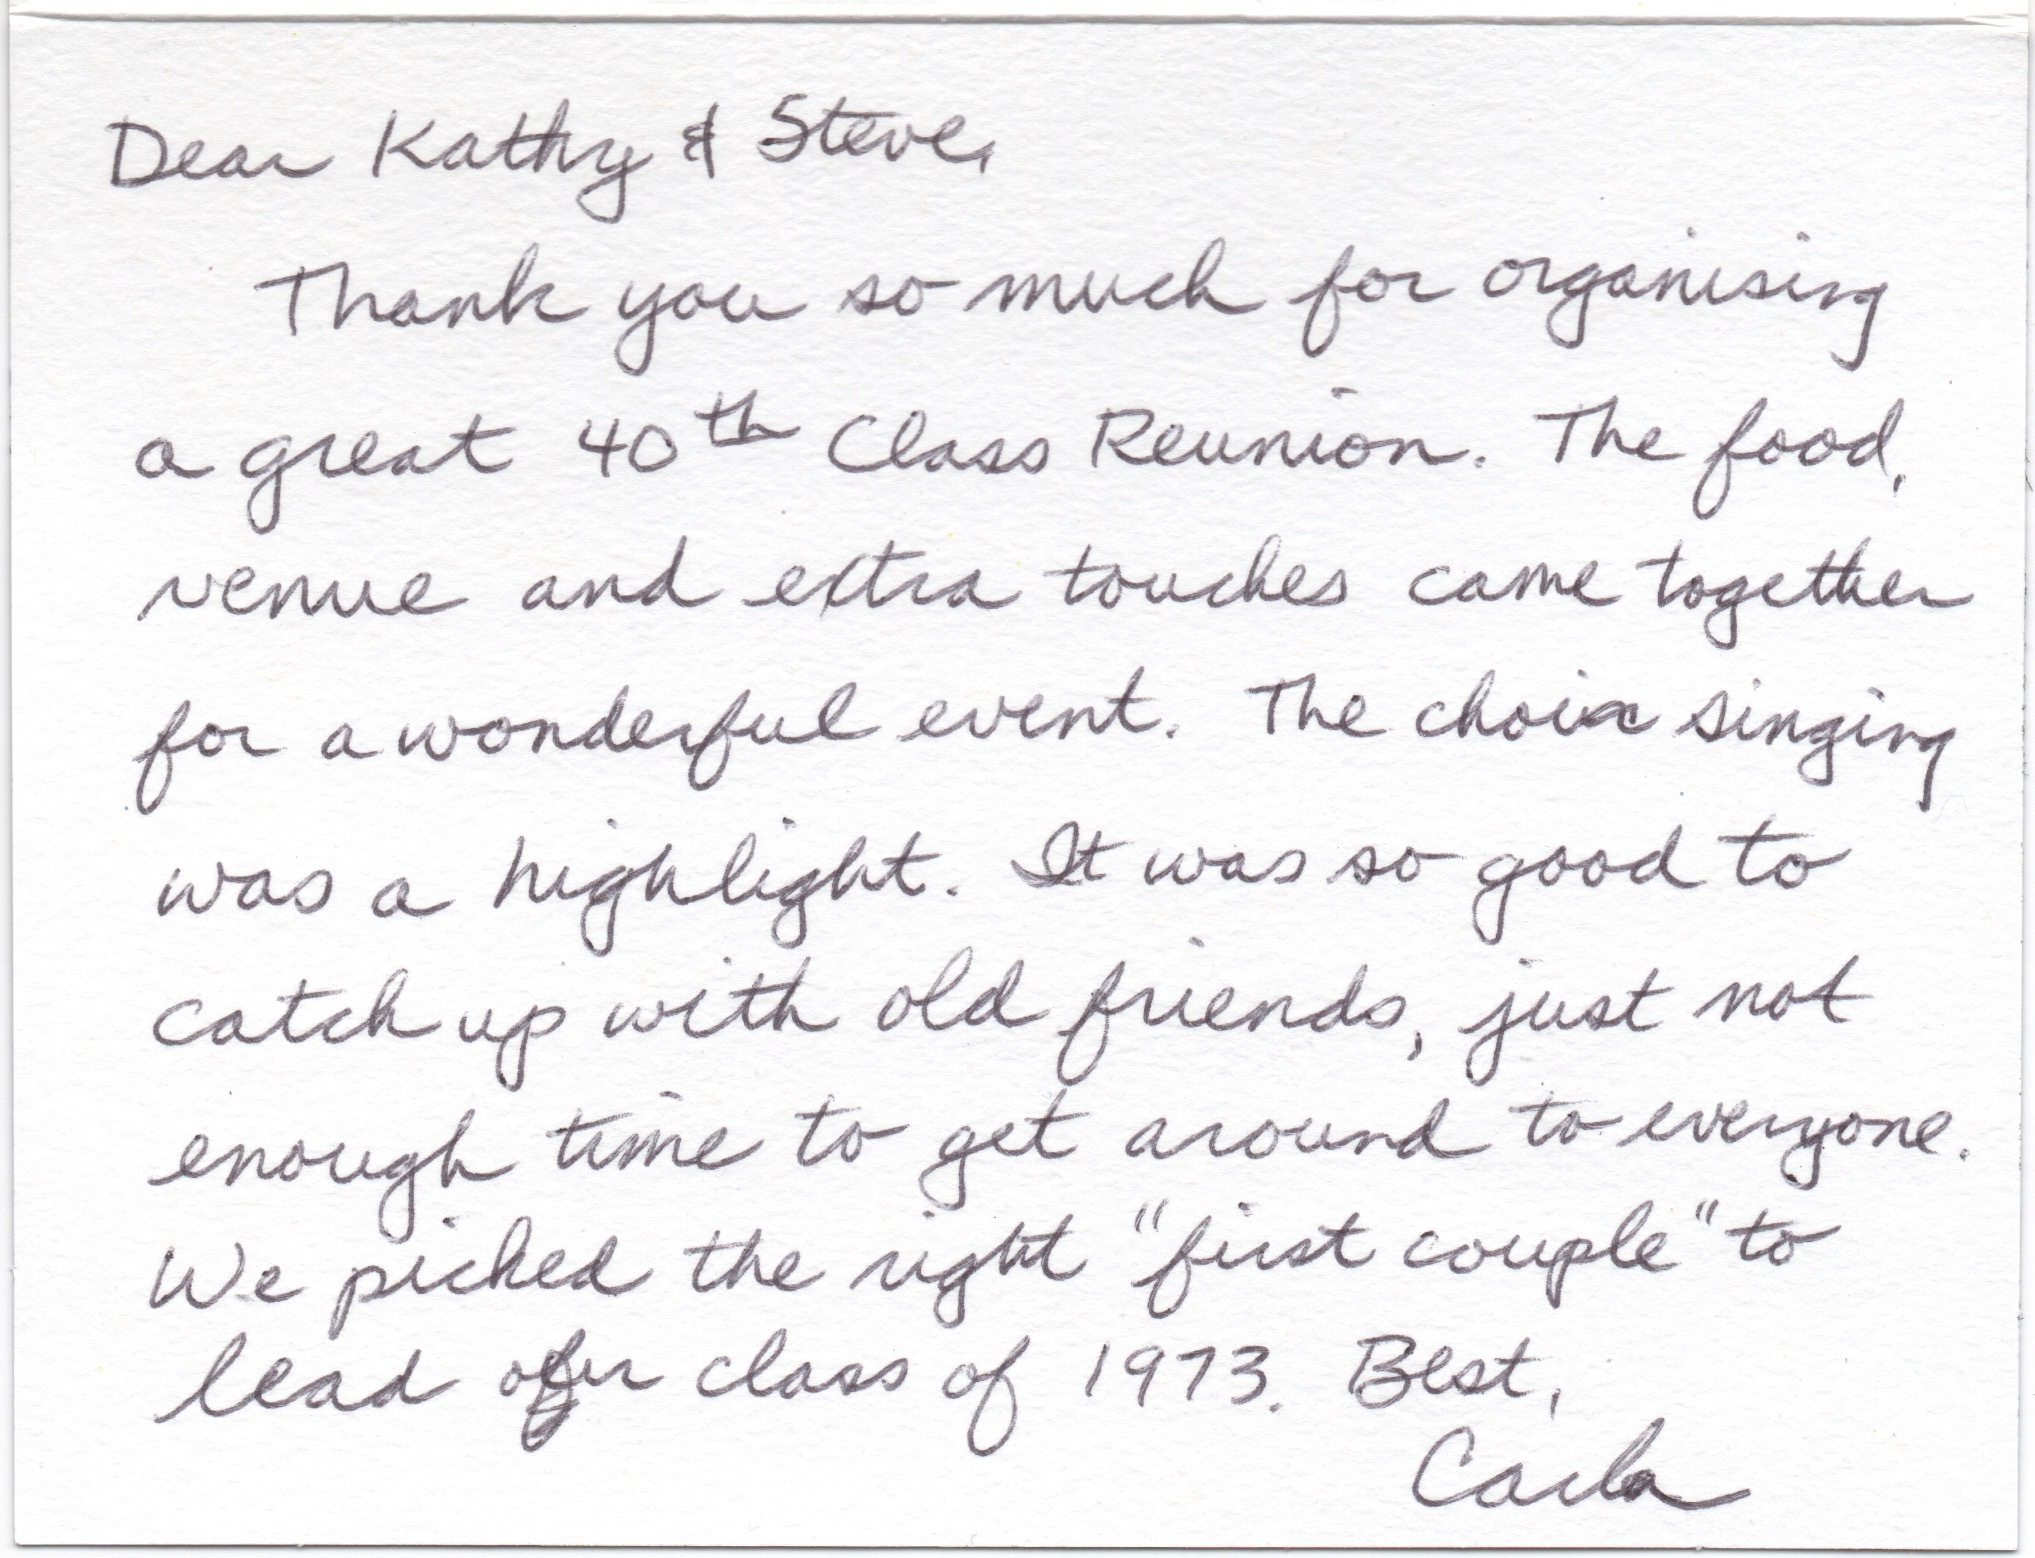 Dear Kathy & Steve,
Thank you so much for organising
a great 40th Class Reunion. The food,
venue and extra touches came together
for a wonderful event. The choir singing
was a highlight. It was so good to
catch up with old friends, just not
enough time to get around to everyone.
We picked the right "first couple" to
lead our class of 1973. Best,
Carla